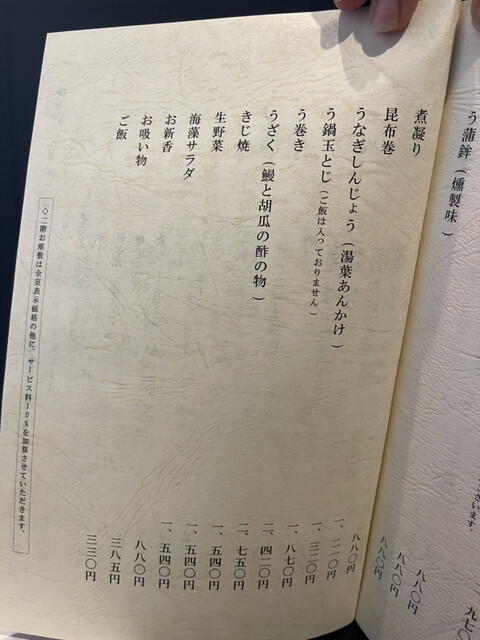 う蒲鉾(燻製味)
煮凝り
昆布巻
うなぎしんじょう(湯葉あんかけ)
う鍋玉とじ(ご飯は入っておりません)
う巻き
うざく(鰻と胡瓜の酢の物)
きじ焼
生野菜
海藻サラダ
お新香
お吸い物
ご飯
ざいます。
八八〇円
八八〇円
八八〇円
八八〇円
一、二一〇円
一、三二〇円
一、八七〇円
二、四二〇円
二、七五〇円
一、五四〇円
一、五四〇円
一、五四〇円
八八〇円
三八五円
三三〇円
◇二階お座敷は全室表示価格の他に、サービス料10%を加算させていただきます。